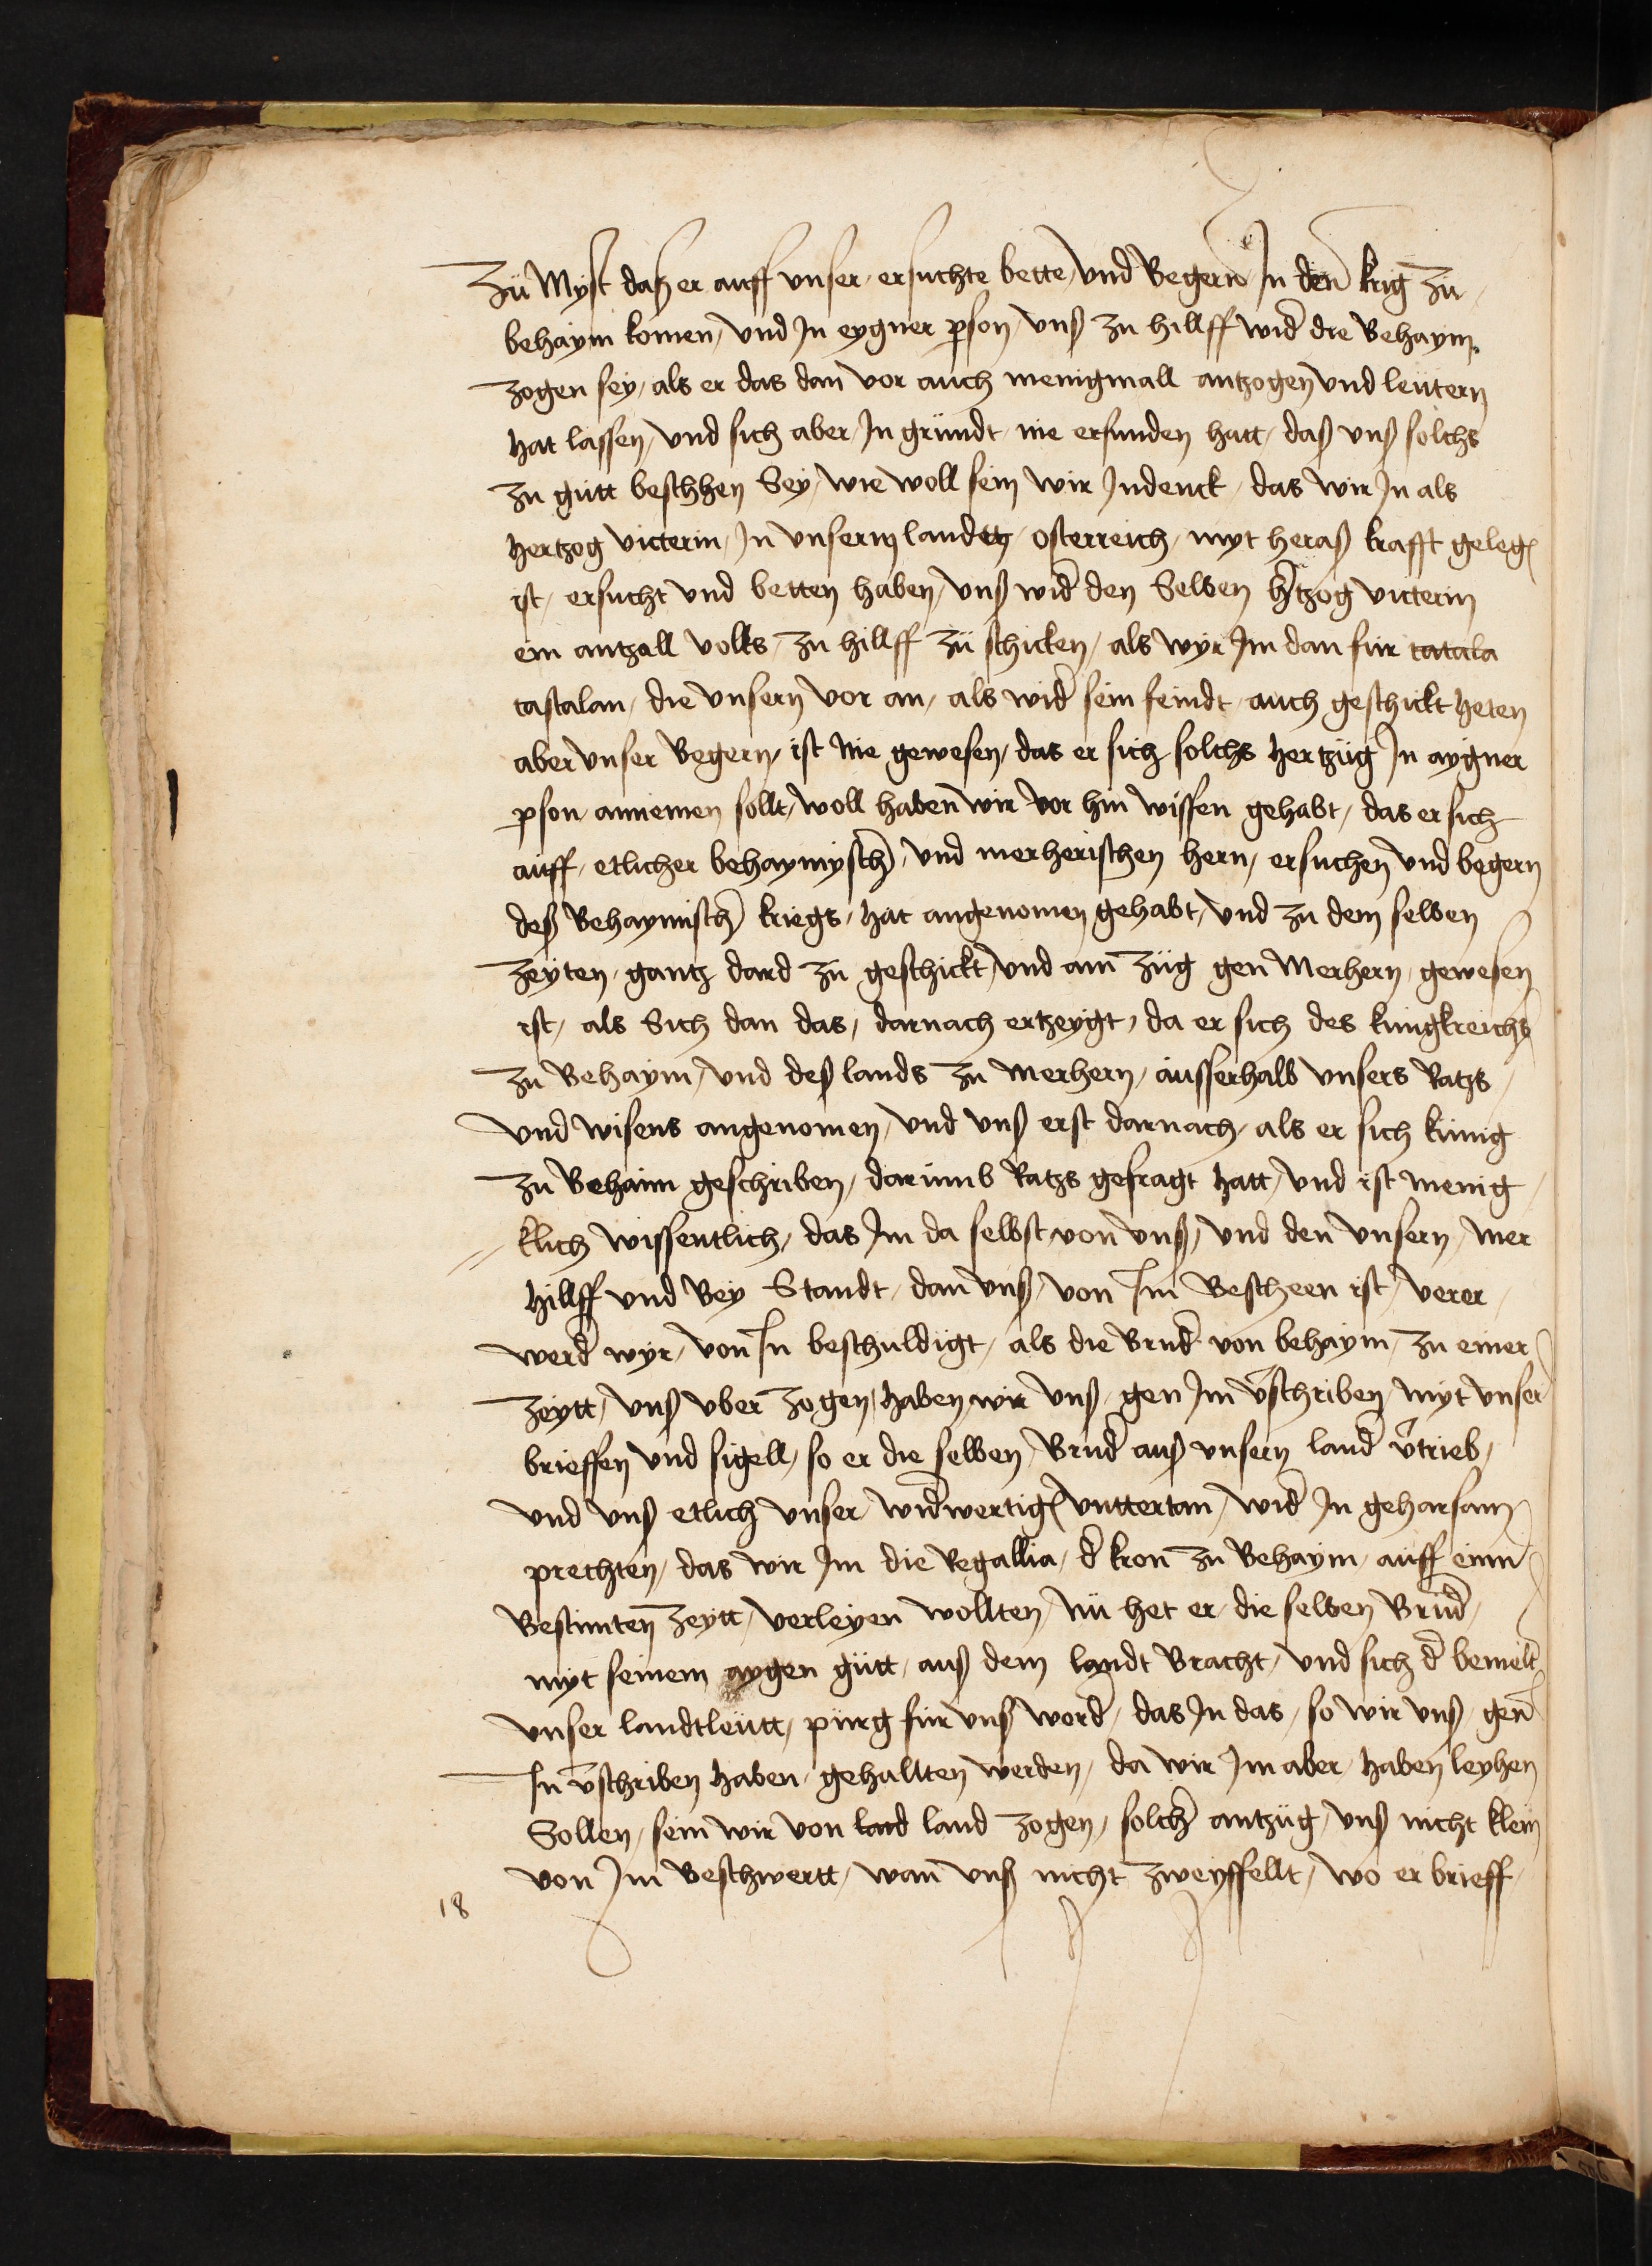 Zü Myst daß er auff vnser ersuchte bette / vnd Begern Jn den krig zü /
behaym komen / vnd Jn eygner pson / vnß zu hillff wid die Behaym
zogen sey / als er das dan vor auch menigmall antzogen vnd leütern
hat lassen / vnd sich aber Jn gründt nie erfunden hatt / daß vnß solchs
zu gütt beschhen Sey / wie woll sein wir Jndenck / das wir Jn als
hertzog victerin / Jn vnserm landen osterreich / myt heraß krafft geleg
ist / ersucht vnd betten haben / vnß wid den Selben htzog victerin
ein antzall volks / zu hillff zü schicken / als wyr Jm dan für tatala
tastalan / die vnsern vor an / als wid sein feindt / auch geschickt heten
aber vnser Begern / ist nie gewesen / das er sich solchs hertzüg Jn aygner
pson annemen sollt / woll haben wir vor hin wissen gehabt / das er sich
auff / etlicher behaymysch / vnd merherischen hern / ersuchen vnd begern
deß Behaymisch kriegs / hat angenomen gehabt / vnd zu dem selben
zeyten / gantz dard zü geschickt / vnd am züg gen Merhern / gewesen
ist / als Sich dan das / darnach ertzeygt / da er sich des kungkreichs
zu Behaym / vnd deß lands zu merhern / ausserhalb vnsers Ratzs /
vnd wisens angenomen / vnd vnß erst darnach / als er sich künig
zu Behaim geschriben / darümb Ratzs gefragt hatt / vnd ist menig /
klich wissentlich / das Jm da selbst von vnß / vnd den vnsern / mer
hillff vnd Bey Standt / dan vnß / von Jm Bescheen ist / verer /
werd wyr / von Jn beschuldigt / als die Brud von behaym / zu einer
zeytt / vnß vber zogen / haben wir vnß / gen Jm vschriben / myt vnser
brieffen vnd sigell / so er die selben Brud auß vnsern land vtrieb /
vnd vnß etlich vnser widwertig vnttertan / wid Jn gehorsam
prechten / das wir Jm die Regallia / d kron zu Behaym / auff einn
Bestimten zeytt / verleyen wollten / nü het er die selben Brüd /
myt seinem aygen gütt / auß dem landt Bracht / vnd sich d bemelt
vnser landtleütt / pürg für vnß word / das Jn das / so wir vnß / gen
Jn vschriben haben / gehallten werden / da wir Jm aber / haben leyhen
Sollen / sein wir von land land zogen / solch antzüg / vnß nicht klein
von Jm Beschwertt / wan vnß nicht zweyffellt / wo er brieff /
18